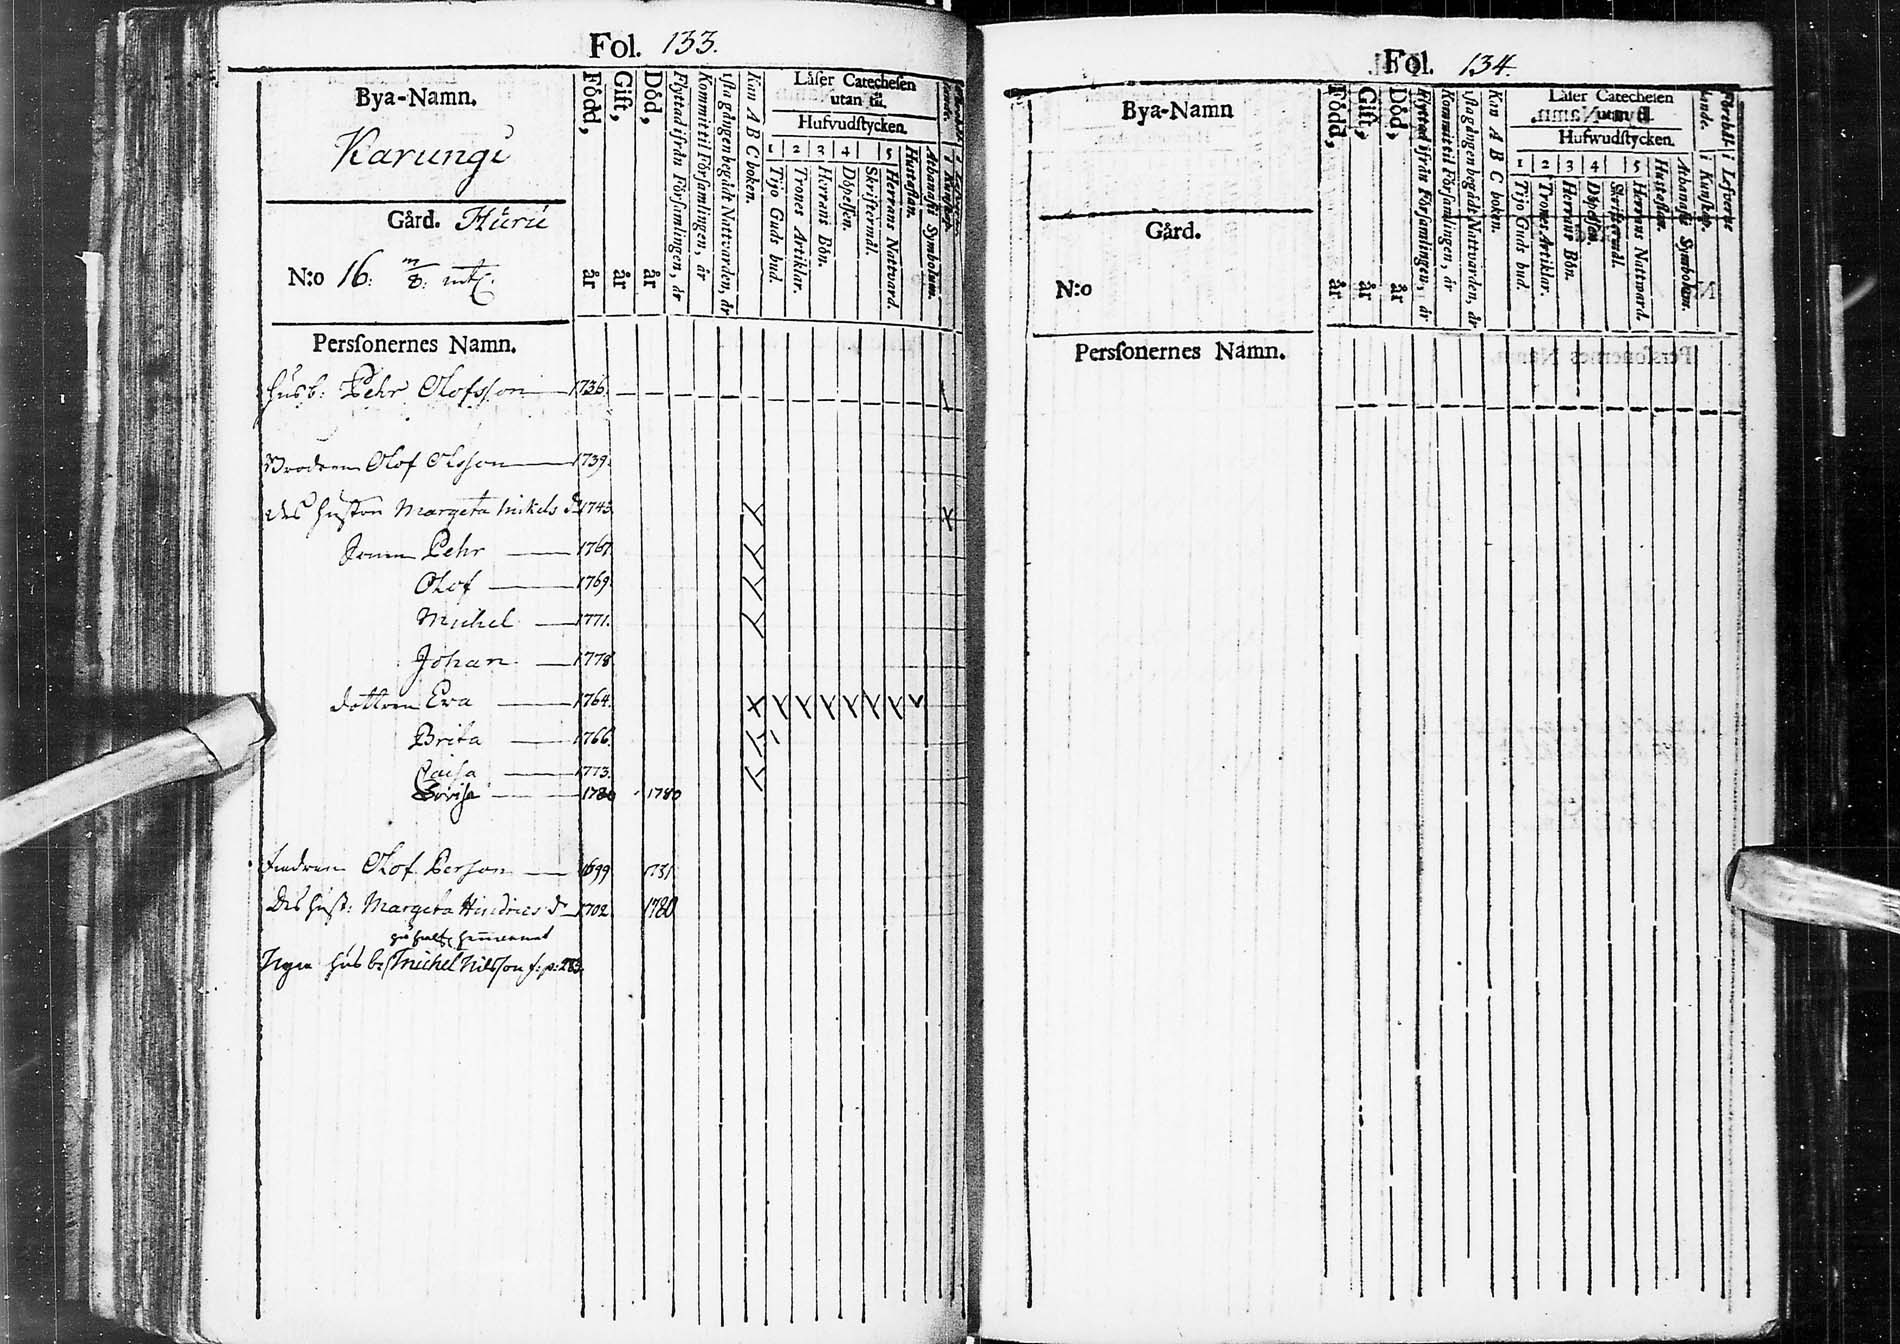 Fol. 133.
Bya-Namn.
Karungi
Gård. Hŭrŭ
N:o 16. m/8. mtl.
Född, år
Gift, år
Död, år
Flyttad ifrån Församlingen, år
Kommit til Församlingen, år
1sta gången begådt Nattvarden, år
Kan A B C boken.
Läser Catechesen
utan til.
Hufvudstycken.
1 2 3 4 5
Tijo Guds bud.
Trones Artiklar.
Herrans Bön.
Döpelsen.
Skriftermål.
Herrans Nattvard.
Hustaflan.
Athanasii Symbolum.
i Kunskap.
Personernes Namn.
Husb: Pehr Olofsson 1736.
Brodren Olof Olsson 1739.
Des Hustru Margeta Mickels d. 1743.
Sonen Pehr 1767.
Olof 1769.
Michel 1771.
Johan 1778.
dottren Eva 1764.
Brita 1766.
Caisa 1773.
1780 1780
Olof Person 1699 1731
Des Hust: Margeta Hindrics d. 1702 1780
Nya Husb: Michel Nilsson f: p: 283.
Fol. 134.
Bya-Namn
Gård.
N:o
Född, år
Gift, år
Död, år
Flyttad ifrån Församlingen, år
Kommit til Församlingen, år
1sta gången begådt Nattvarden, år
Kan A B C boken.
Läser Catechesen
utan til.
Hufwudstycken.
1 2 3 4 5
Tijo Guds bud.
Trones Artiklar.
Herrans Bön.
Döpelsen.
Skriftermål.
Herrans Nattward.
Hustaflan.
Athanasii Symbolum.
Förehållande.
i Kunskap.
i Lefverne
Personernes Namn.